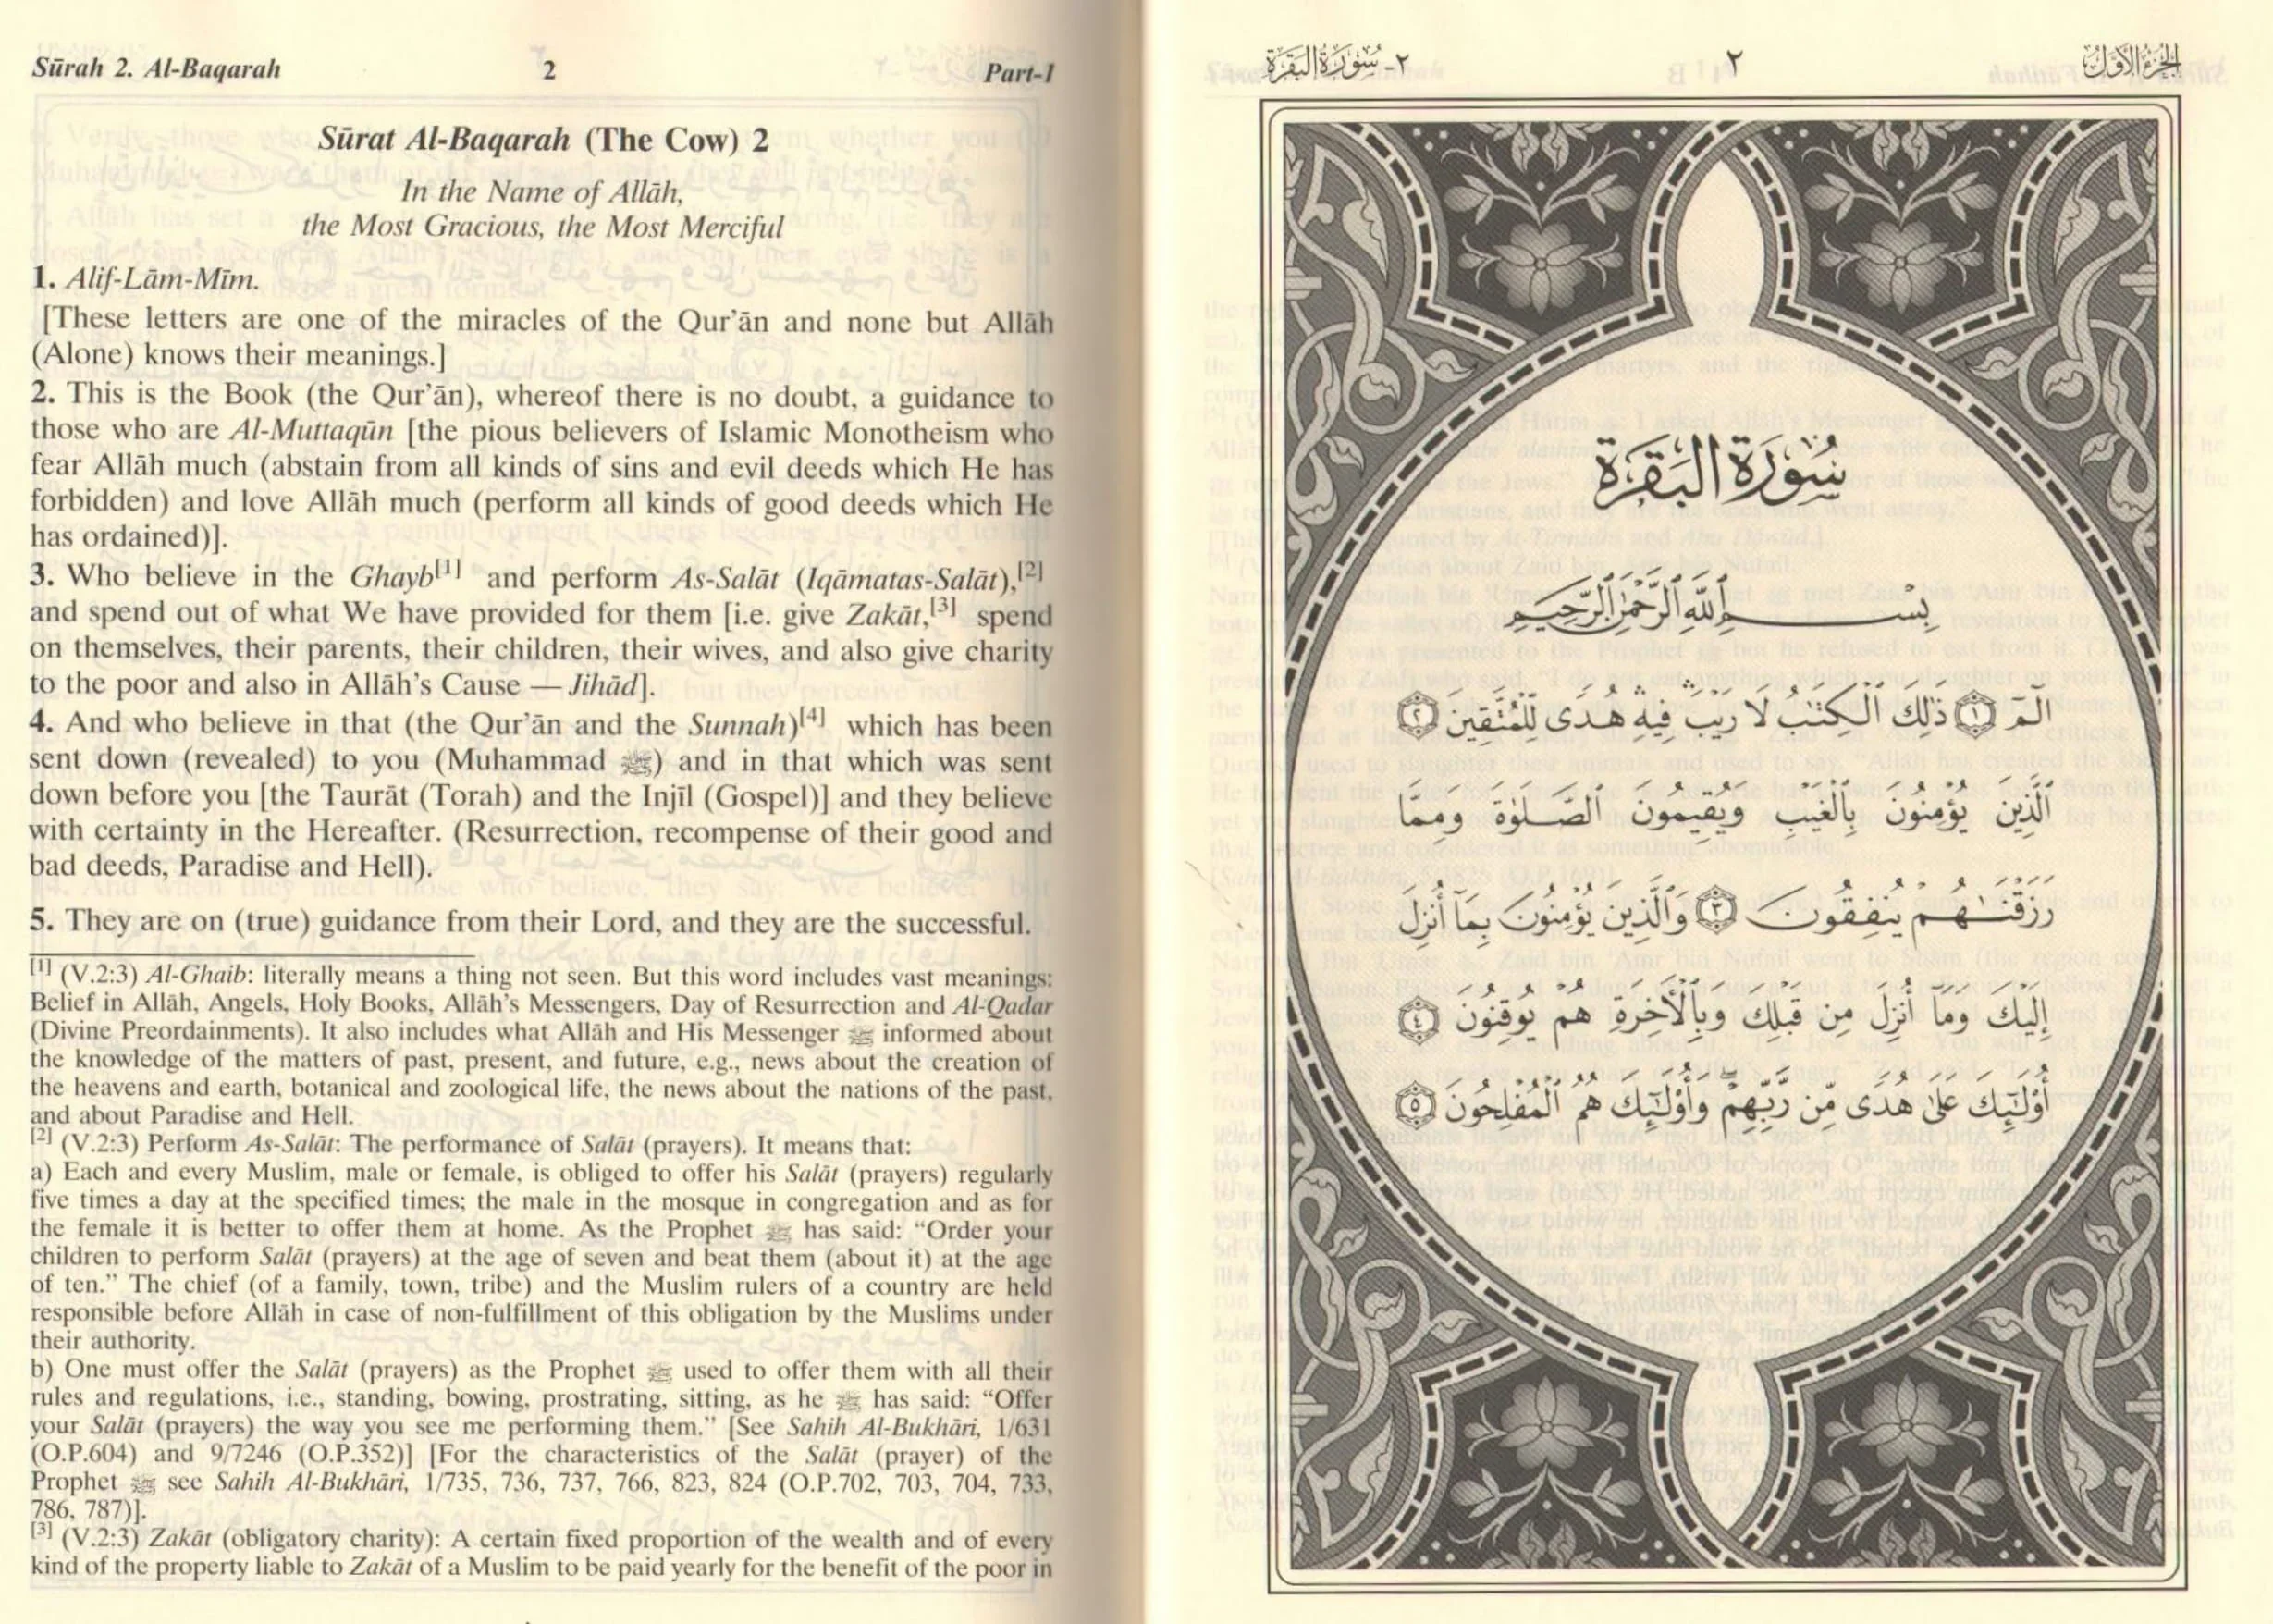 Sūrah 2. Al-Baqarah 2 Part-1
Sūrat Al-Baqarah (The Cow) 2
In the Name of Allāh,
the Most Gracious, the Most Merciful
1. Alif-Lām-Mīm.
[These letters are one of the miracles of the Qur’ān and none but Allāh
(Alone) knows their meanings.]
2. This is the Book (the Qur’ān), whereof there is no doubt, a guidance to
those who are Al-Muttaqūn [the pious believers of Islamic Monotheism who
fear Allāh much (abstain from all kinds of sins and evil deeds which He has
forbidden) and love Allāh much (perform all kinds of good deeds which He
has ordained)].
3. Who believe in the Ghayb[1] and perform As-Salāt (Iqāmatas-Salāt),[2]
and spend out of what We have provided for them [i.e. give Zakāt,[3] spend
on themselves, their parents, their children, their wives, and also give charity
to the poor and also in Allāh’s Cause — Jihād].
4. And who believe in that (the Qur’ān and the Sunnah)[4] which has been
sent down (revealed) to you (Muhammad ﷺ) and in that which was sent
down before you [the Taurāt (Torah) and the Injīl (Gospel)] and they believe
with certainty in the Hereafter. (Resurrection, recompense of their good and
bad deeds, Paradise and Hell).
5. They are on (true) guidance from their Lord, and they are the successful.
[1] (V.2:3) Al-Ghaib: literally means a thing not seen. But this word includes vast meanings:
Belief in Allāh, Angels, Holy Books, Allāh’s Messengers, Day of Resurrection and Al-Qadar
(Divine Preordainments). It also includes what Allāh and His Messenger ﷺ informed about
the knowledge of the matters of past, present, and future, e.g., news about the creation of
the heavens and earth, botanical and zoological life, the news about the nations of the past,
and about Paradise and Hell.
[2] (V.2:3) Perform As-Salāt: The performance of Salāt (prayers). It means that:
a) Each and every Muslim, male or female, is obliged to offer his Salāt (prayers) regularly
five times a day at the specified times; the male in the mosque in congregation and as for
the female it is better to offer them at home. As the Prophet ﷺ has said: “Order your
children to perform Salāt (prayers) at the age of seven and beat them (about it) at the age
of ten.” The chief (of a family, town, tribe) and the Muslim rulers of a country are held
responsible before Allāh in case of non-fulfillment of this obligation by the Muslims under
their authority.
b) One must offer the Salāt (prayers) as the Prophet ﷺ used to offer them with all their
rules and regulations, i.e., standing, bowing, prostrating, sitting, as he ﷺ has said: “Offer
your Salāt (prayers) the way you see me performing them.” [See Sahih Al-Bukhāri, 1/631
(O.P.604) and 9/7246 (O.P.352)] [For the characteristics of the Salāt (prayer) of the
Prophet ﷺ see Sahih Al-Bukhāri, 1/735, 736, 737, 766, 823, 824 (O.P.702, 703, 704, 733,
786, 787)].
[3] (V.2:3) Zakāt (obligatory charity): A certain fixed proportion of the wealth and of every
kind of the property liable to Zakāt of a Muslim to be paid yearly for the benefit of the poor in
الجزء الأول ٢ ٢- سورة البقرة
سُورَةُ البَقَرَةِ
بِسْمِ اللَّهِ الرَّحْمَٰنِ الرَّحِيمِ
الٓمٓ ١ ذَٰلِكَ ٱلْكِتَٰبُ لَا رَيْبَ ۛ فِيهِ ۛ هُدًى لِّلْمُتَّقِينَ ٢
ٱلَّذِينَ يُؤْمِنُونَ بِٱلْغَيْبِ وَيُقِيمُونَ ٱلصَّلَوٰةَ وَمِمَّا
رَزَقْنَٰهُمْ يُنفِقُونَ ٣ وَٱلَّذِينَ يُؤْمِنُونَ بِمَآ أُنزِلَ
إِلَيْكَ وَمَآ أُنزِلَ مِن قَبْلِكَ وَبِٱلْأَخِرَةِ هُمْ يُوقِنُونَ ٤
أُوْلَٰٓئِكَ عَلَىٰ هُدًى مِّن رَّبِّهِمْ ۖ وَأُوْلَٰٓئِكَ هُمُ ٱلْمُفْلِحُونَ ٥